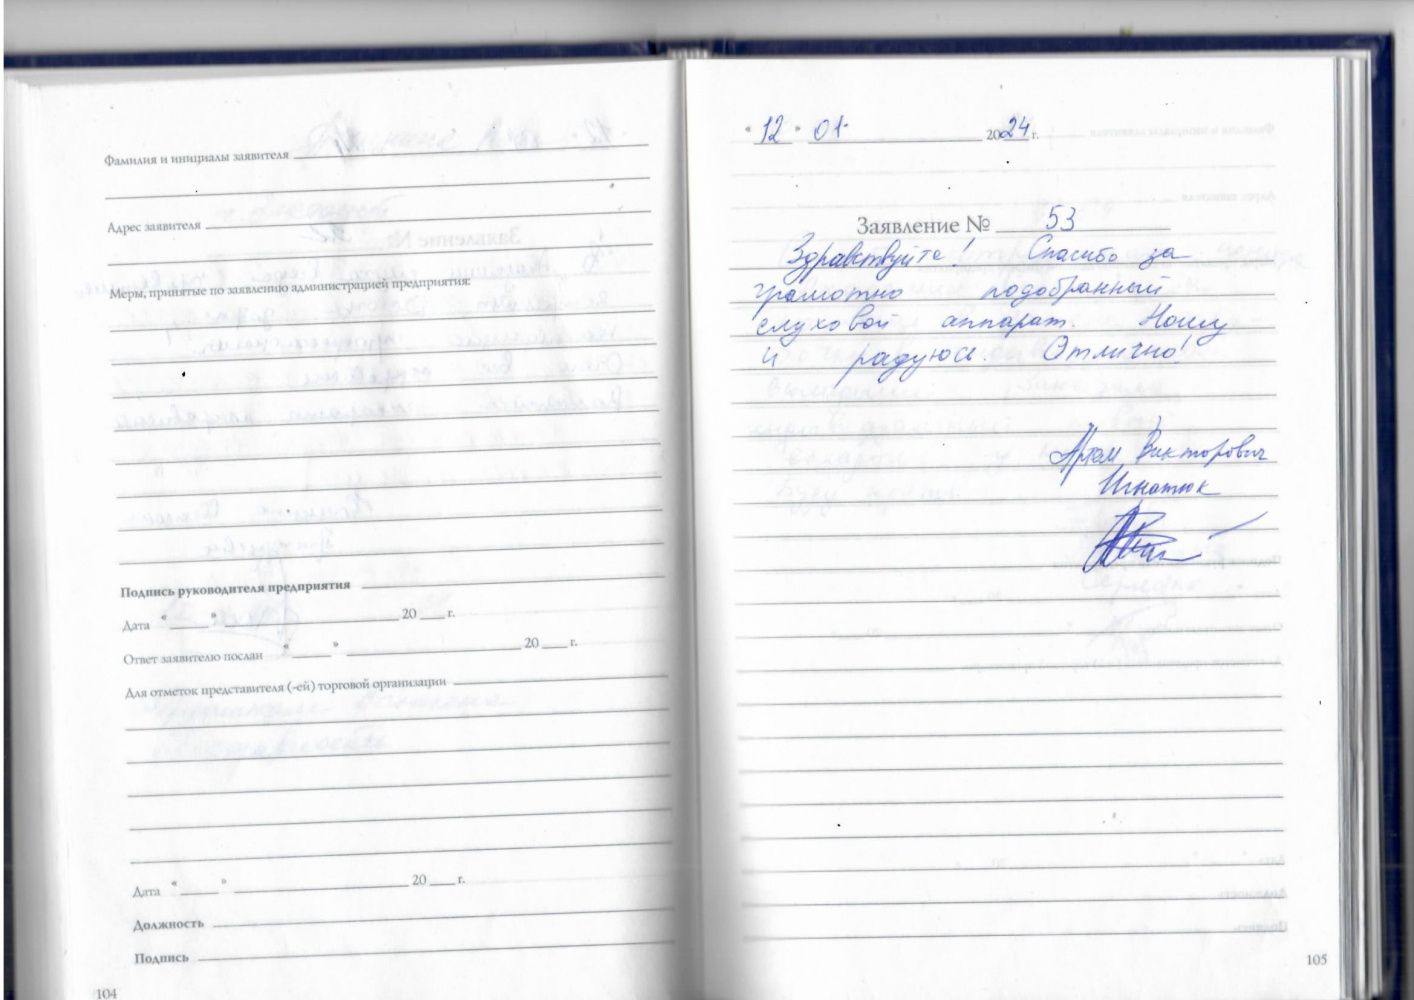 Фамилия и инициалы заявителя
Адрес заявителя
Меры, принятые по заявлению администрацией предприятия:
Подпись руководителя предприятия
Дата « » 20 г.
Ответ заявителю послан « » 20 г.
Для отметок представителя (-ей) торговой организации
Дата « » 20 г.
Должность
Подпись
104
« 12 » 01. 2024 г.
Заявление № 53
Здравствуйте! Спасибо за
грамотно подобранный
слуховой аппарат. Ношу
и радуюсь. Отлично!
Артем Викторович
Игнатюк
105